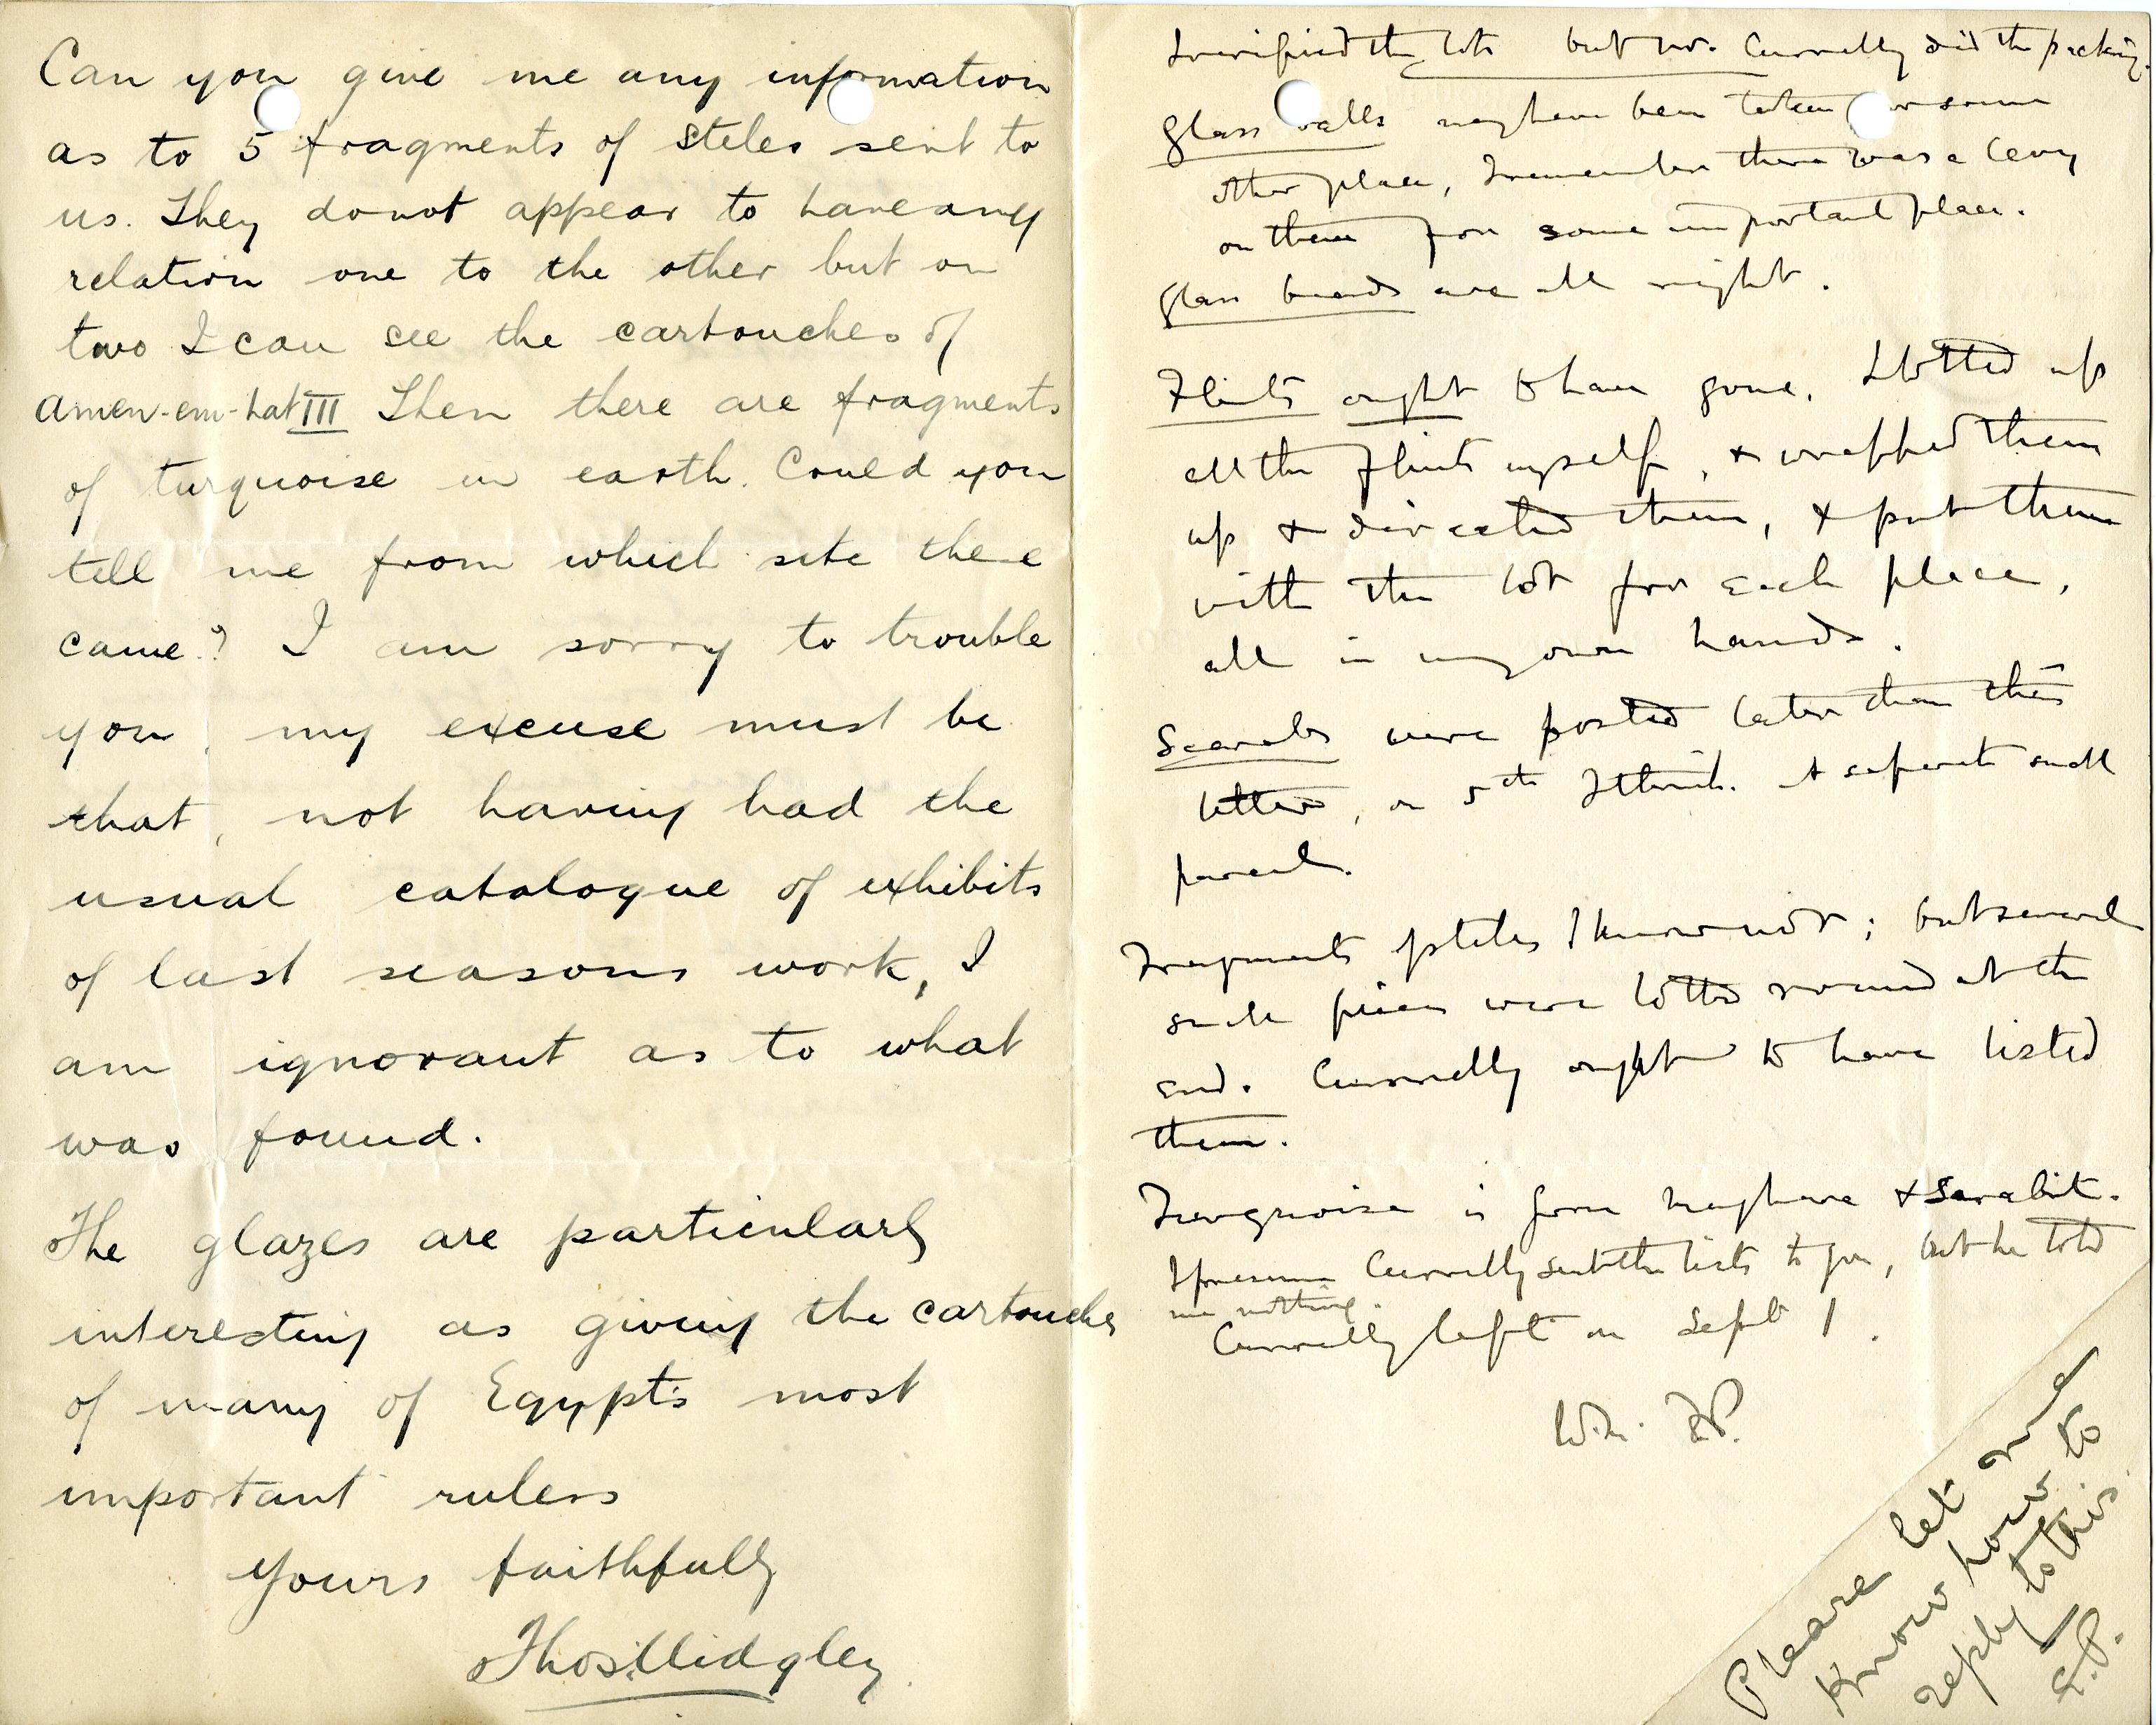 Can you give me any information
as to 5 fragments of steles sent to
us. They do not appear to have any
relation one to the other but on
two I can see the cartouches of
Amen-em-hat III Then there are fragments
of turquoise in earth. Could you
tell me from which site these
came? I am sorry to trouble
you, my excuse must be
that, not having had the
usual catalogue of exhibits
of last seasons work, I
am ignorant as to what
was found.
The glazes are particularly
interesting as giving the cartouches
of many of Egypts most
important rulers
Yours faithfully
Thos Midgley
I verified the lots but Mr. Currelly did the packing.
Glass balls may have been taken for some
other place, I remember there was a levy
on them for some important place.
Glass beads are all right.
Flints ought to have gone. I lotted up
all the flints myself, & wrapped them
up & directed them, & put them
with the lot for each place,
all in my own hands.
Scarabs were posted later than this
letter, on 5th I think. A separate small
parcel.
Fragments of steles I know not; but several
such pieces were lotted round at the
end. Currelly ought to have listed
them.
Turquoise is from Maghara & Serabit.
I presume Currelly sent the lists to you, but he told
me nothing.
Currelly left on Sept 1.
W. M. F. P.
Please let me
know how to
reply to this.